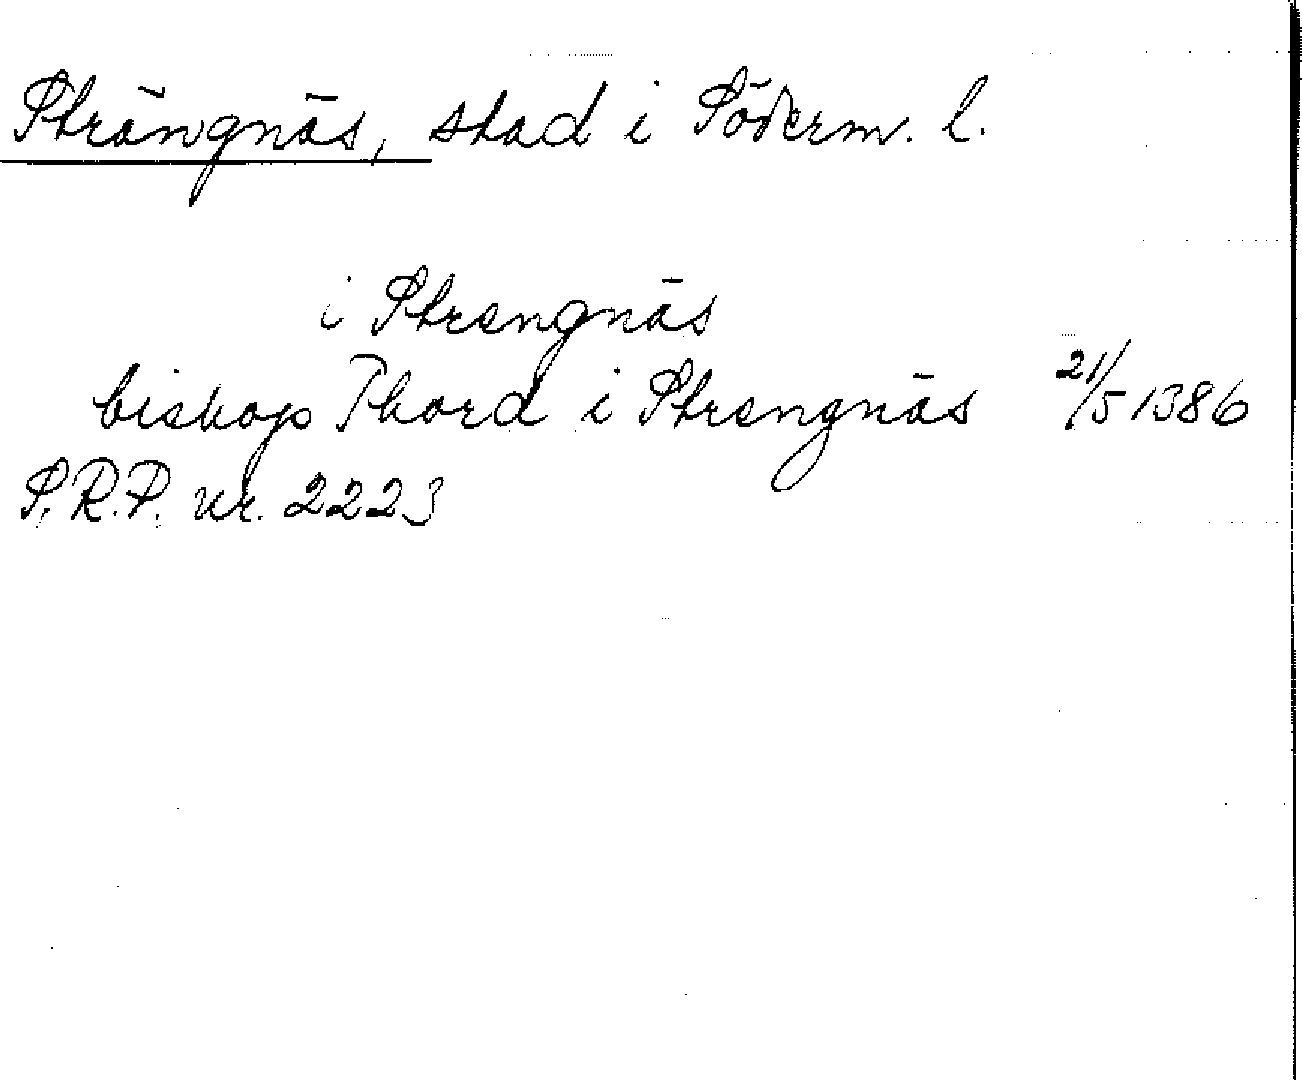 Strängnäs, stad i Söderm. l.
i Strengnäs
biskop Thord i Strengnäs 21/5 1386
S.R.P. nr. 2223